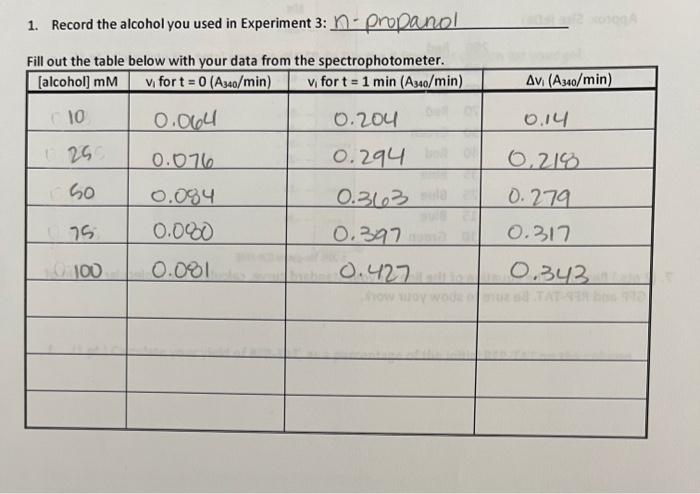 1. Record the alcohol you used in Experiment 3: n-propanol
Fill out the table below with your data from the spectrophotometer.
[alcohol] mM vᵢ for t = 0 (A₃₄₀/min) vᵢ for t = 1 min (A₃₄₀/min) Δvᵢ (A₃₄₀/min)
10 0.064 0.204 0.14
25 0.076 0.294 0.218
50 0.084 0.363 0.279
75 0.080 0.397 0.317
100 0.081 0.427 0.343